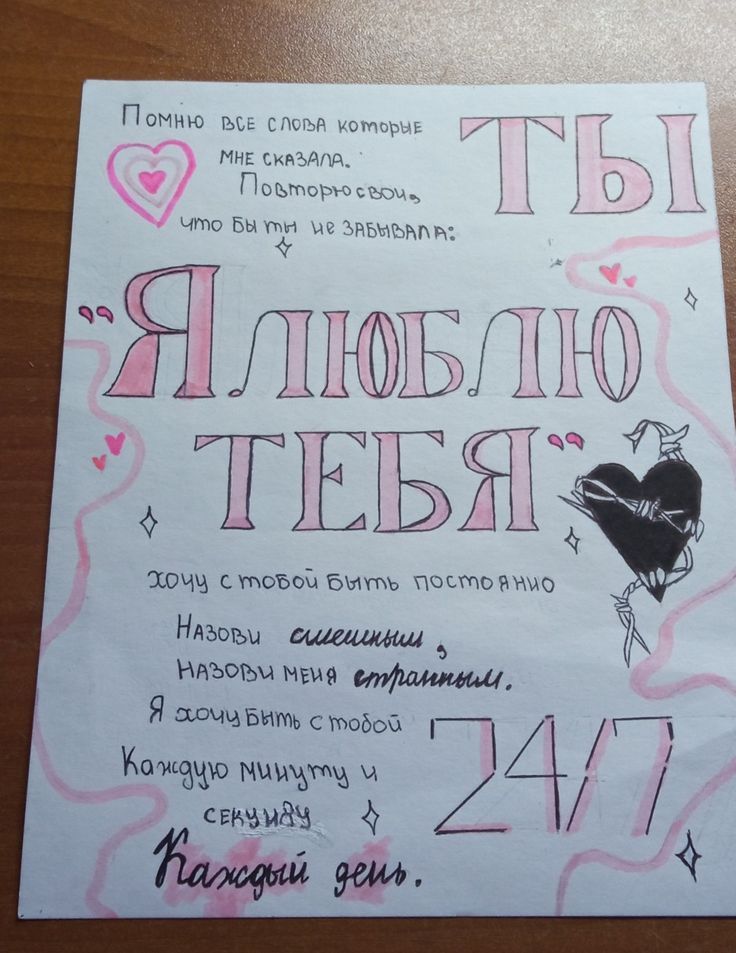 Помню все слова которые ТЫ
мне сказала.
Повторю свои,
что бы ты не забывала:
"Я ЛЮБЛЮ
ТЕБЯ"
хочу с тобой быть постоянно
Назови смешным,
назови меня странным.
Я хочу быть с тобой 24/7
Каждую минуту и
секунду
Каждый день.